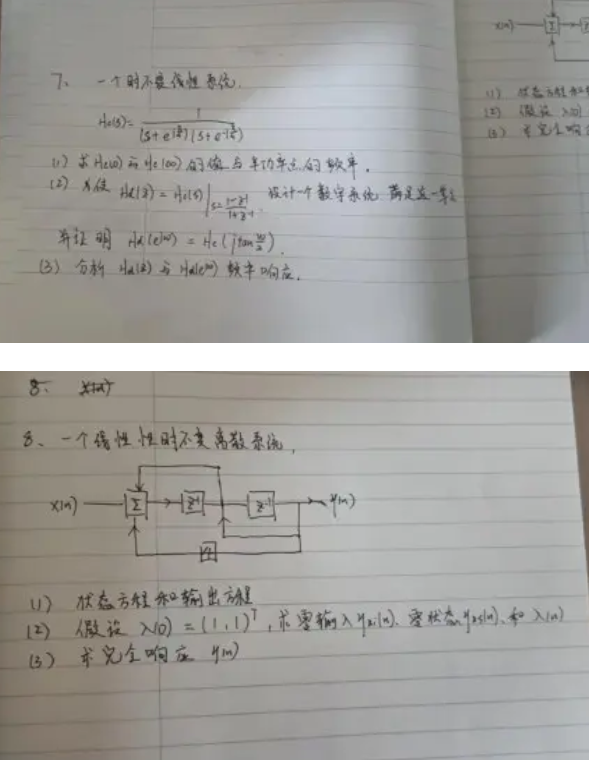 7、一个时不变线性系统.
Hc(s)= 1 / (s+e^{jπ/4})(s+e^{-jπ/4})
(1) 求Hc(0)与Hc(∞)的值与半功率点的频率.
(2) 若使 Hd(z)=Hc(s)|s=1-z^-1/1+z^-1. 设计一个数字系统
并证明 Hd(e^{jω})=Hc(jtan ω/2).
(3) 分析Hd(z)与Hd(e^{jω})频率响应.
x(n)
Σ
(1) 状态方程和
(2) 假设 λ(0)
(3) 求完全响应
8、
8、一个线性性时不变离散系统,
x(n) Σ z^-1 z^-1 y(n)
1/4
(1) 状态方程和输出方程
(2) 假设 λ(0)=(1,1)^T, 求零输入yzi(n)、零状态yzs(n)、和λ(n)
(3) 求完全响应 y(n)